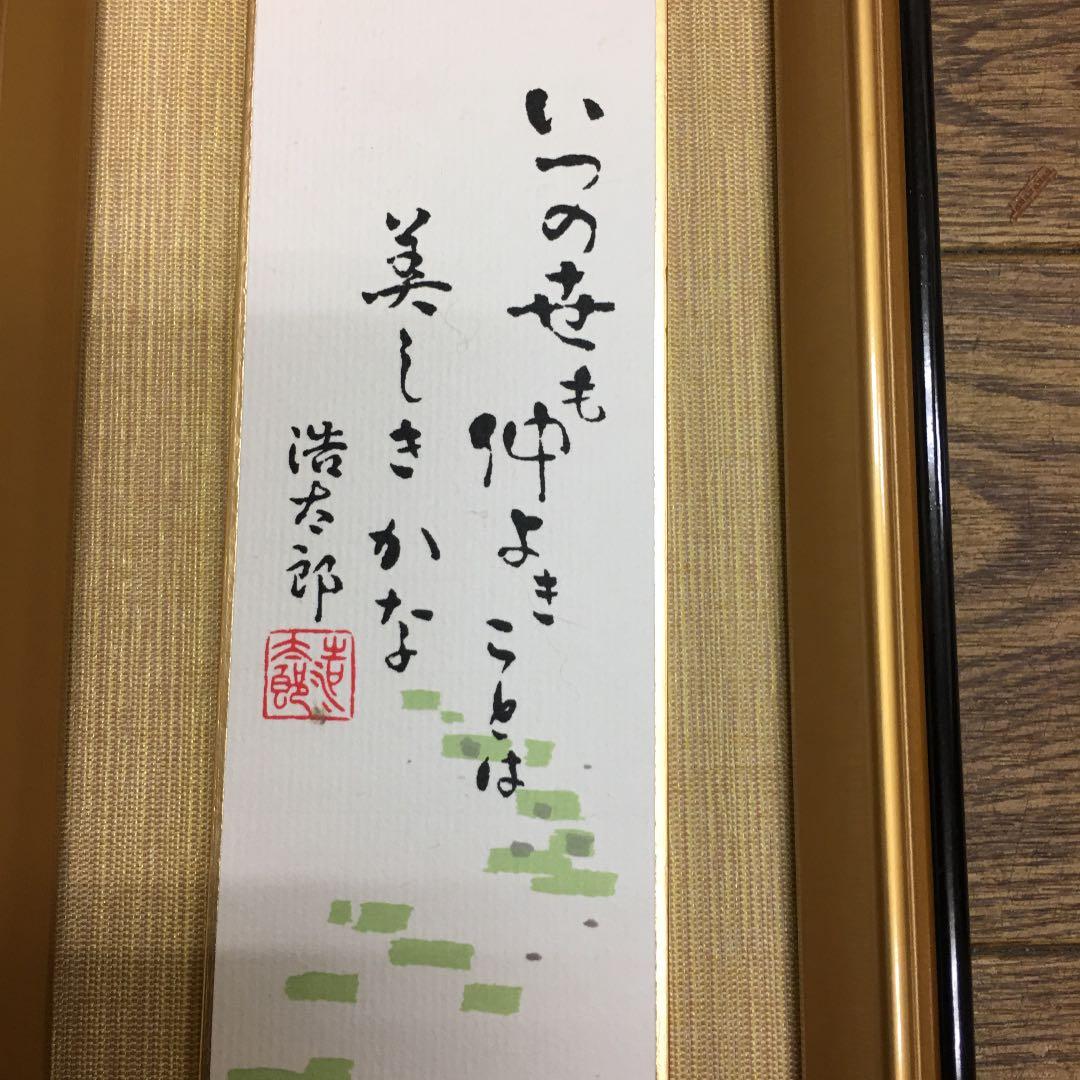 いつの世も仲よきことは
美しきかな
浩太郎
浩太郎